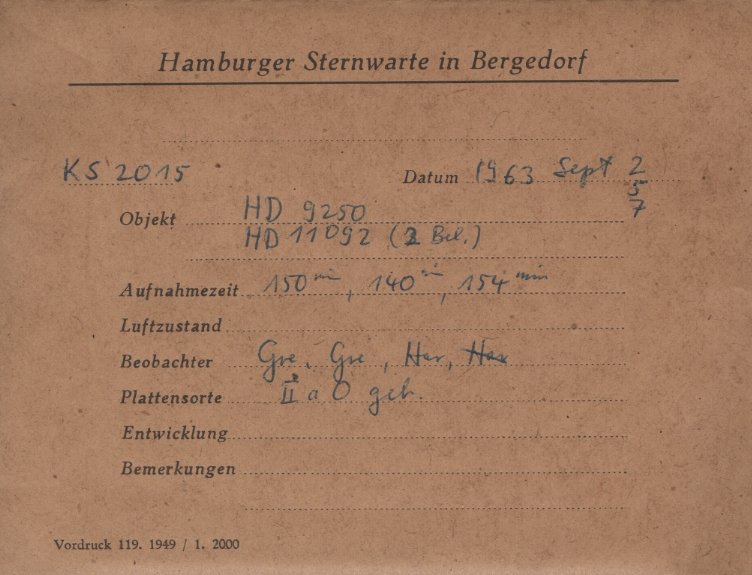 Hamburger Sternwarte in Bergedorf
KS 2015 Datum 1963 Sept 2
5
7
Objekt HD 9250
HD 11092 (2 Bel.)
Aufnahmezeit 150 min, 140 min, 154 min
Luftzustand
Beobachter Gre, Gre, Har, Har
Plattensorte II a O geh.
Entwicklung
Bemerkungen
Vordruck 119. 1949 / 1. 2000